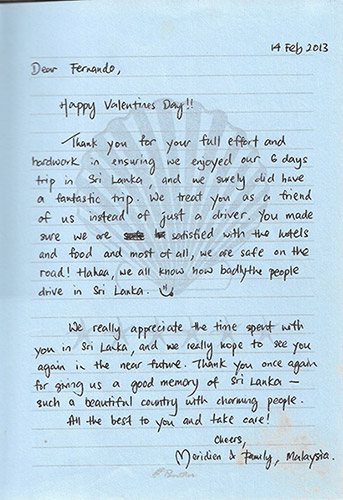 14 Feb 2013
Dear Fernando,
Happy Valentines Day!!
Thank you for your full effort and
hardwork in ensuring we enjoyed our 6 days
trip in Sri Lanka, and we surely did have
a fantastic trip. We treat you as a friend
of us instead of just a driver. You made
sure we are satisfied with the hotels
and food and most of all, we are safe on the
road! Hahaa, we all know how badly the people
drive in Sri Lanka.
We really appreciate the time spent with
you in Sri Lanka, and we really hope to see you
again in the near future. Thank you once again
for giving us a good memory of Sri Lanka –
such a beautiful country with charming people.
All the best to you and take care!
Cheers,
Meridien & Family, Malaysia.